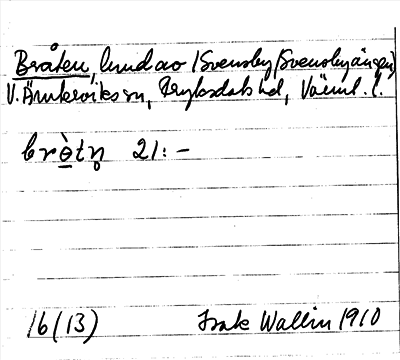 Bråten, lund av (Svensby/Svensbyängen)
V. Ämterviks sn, Fryksdals hd, Värml. l.
brɵ̀tn̥ 21:-
16(13) Isak Wallin 1910